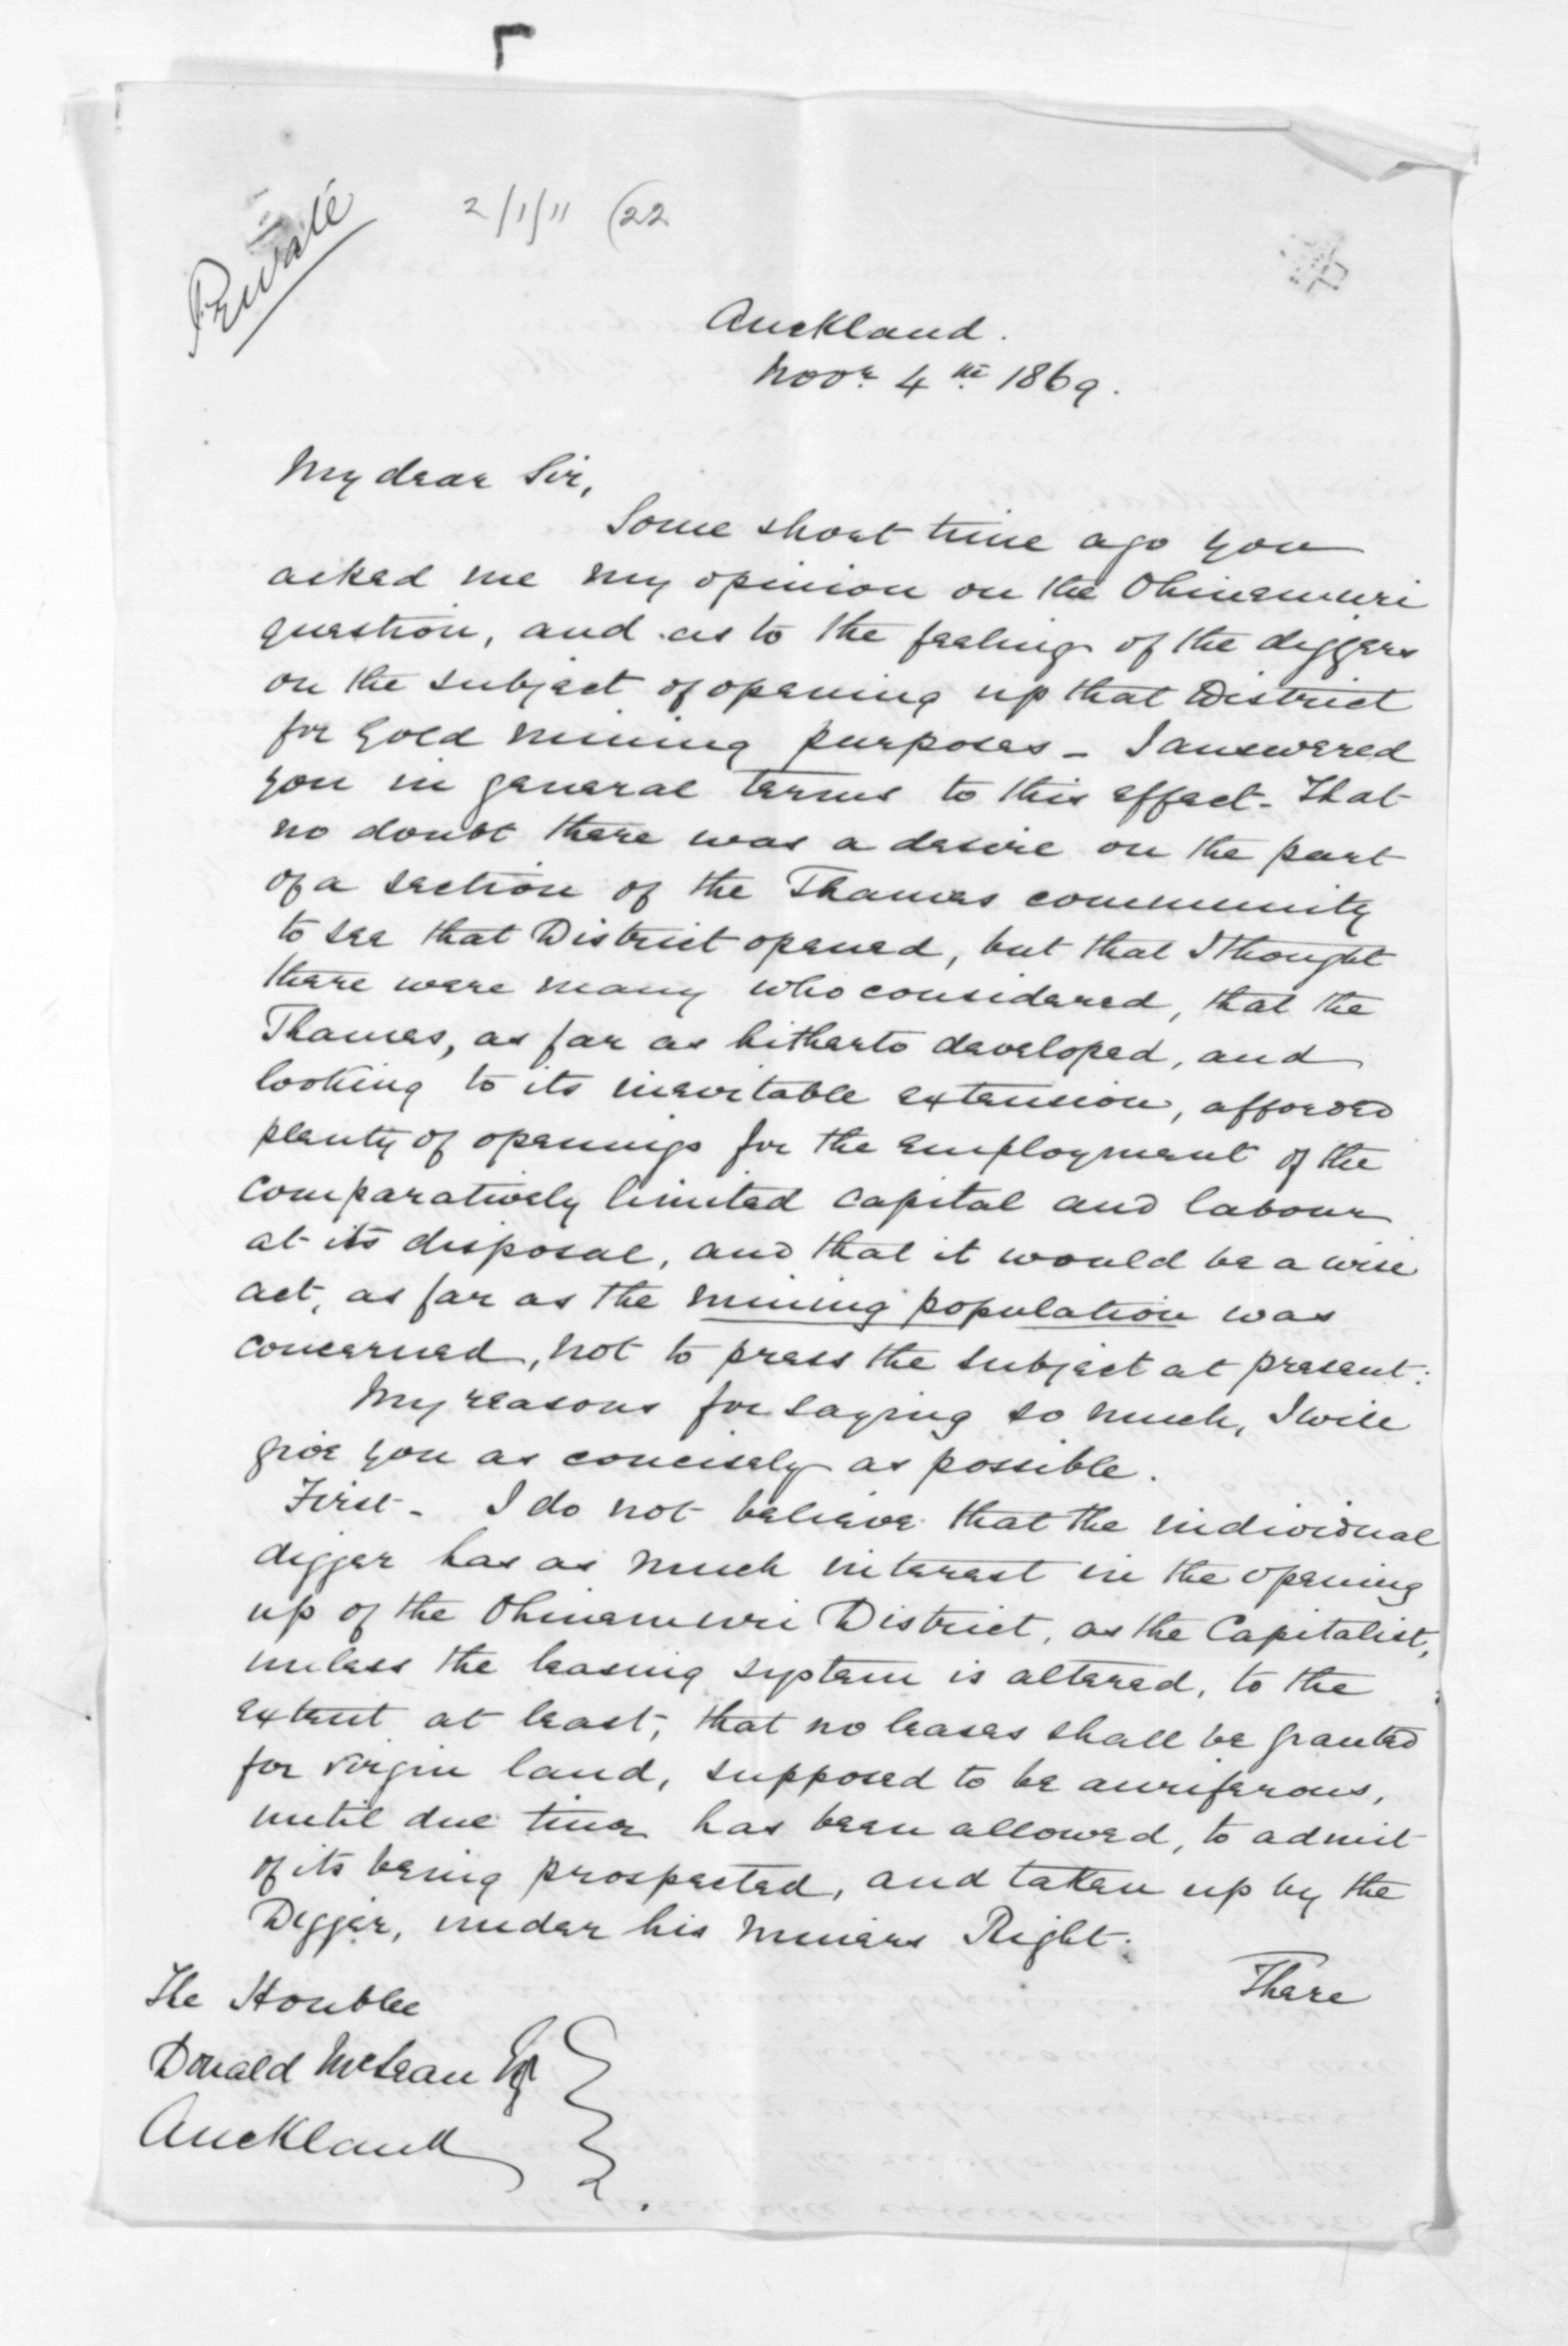 Private
2/1/11 (22
Auckland.
Novr. 4th 1869.
My dear Sir,
Some short time ago you
asked me my opinion on the Ohinemuri
question, and as to the feeling of the diggers
on the subject of opening up that District
for Gold mining purposes - I answered
you in general terms to this effect - That
no doubt there was a desire on the part
of a section of the Thames community
to see that District opened, but that I thought
there were many who considered, that the
Thames, as far as hitherto developed, and
looking to its inevitable extension, afforded
plenty of openings for the employment of the
comparatively limited capital and labour
at its disposal, and that it would be a wise
act, as far as the mining population was
concerned, not to press the subject at present:
My reasons for saying so much, I will
give you as concisely as possible.
First - I do not believe that the individual
digger has as much interest in the opening
up of the Ohinemuri District, as the Capitalist,
unless the leasing system is altered, to the
extent at least, that no leases shall be granted
for virgin land, supposed to be auriferous,
until due time has been allowed, to admit
of its being prospected, and taken up by the
Digger, under his Miners Right.
There
The Honble
Donald McLean Esq
Auckland